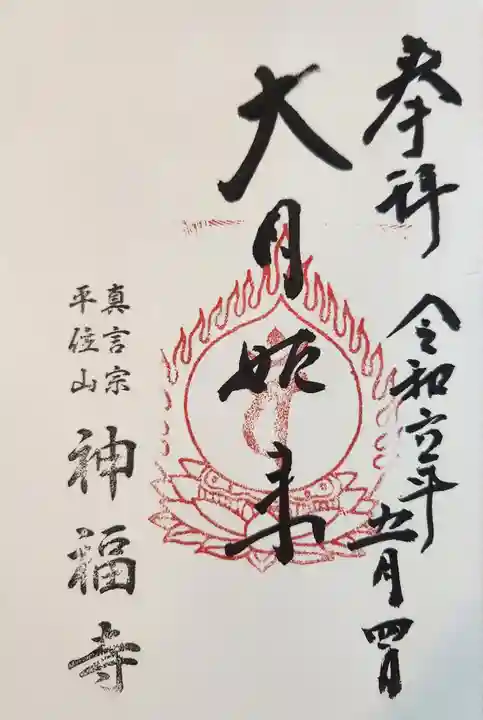 奉拝 令和六年五月四日
大日如来
真言宗
平位山
神福寺